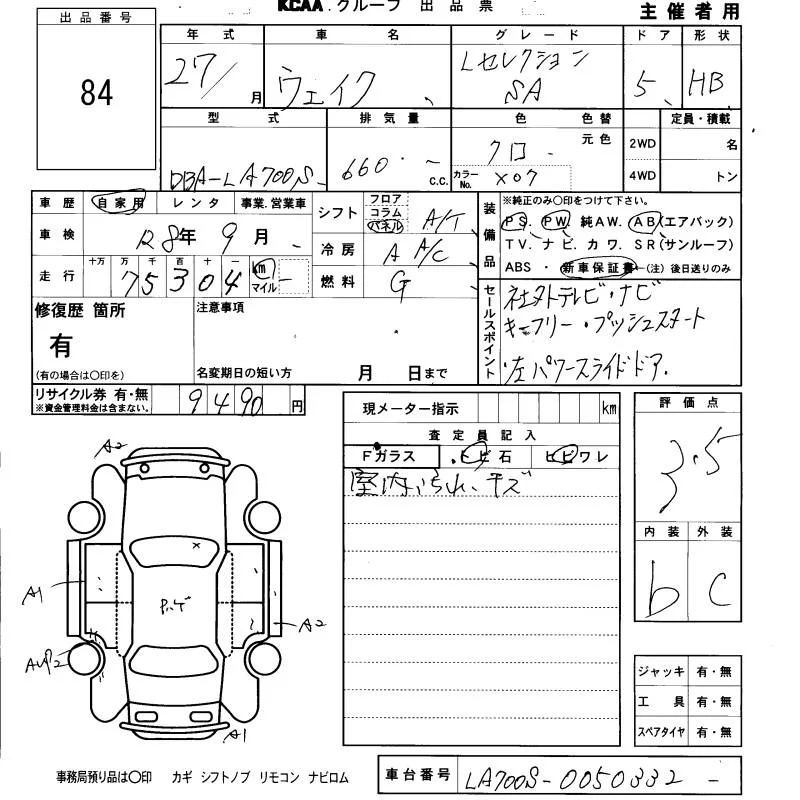 KCAA グループ 出品票
主催者用
出品番号
84
年式 車名 グレード ドア 形状
27/ 月 ウェイク Lセレクション SA 5 HB
型式 排気量 色 色替 定員・積載
元色
DBA-LA700S 660 c.c. クロ 2WD 名
カラーNo. X07 4WD トン
車歴 自家用 レンタ 事業.営業車
シフト フロア コラム パネル A/T
車検 R8年 9月
冷房 A A/C
走行 十万 万 千 百 十 一
75304 km マイル
燃料 G
装備品
※純正のみ○印をつけて下さい。
PS. PW. 純AW. AB(エアバック)
TV. ナビ. カワ. SR(サンルーフ)
ABS ・ 新車保証書 (注)後日送りのみ
セールスポイント
社外テレビ・ナビ
キーフリー・プッシュスタート
左パワースライドドア.
修復歴 箇所
有
(有の場合は○印を)
注意事項
名変期日の短い方 月 日まで
リサイクル券 有・無
※資金管理料金は含まない。
9490 円
現メーター指示 km
査定員記入
Fガラス トビ石 ヒビワレ
室内よごれ、キズ
評価点
3.5
内装 外装
b C
A2
A1
A2
A1
ジャッキ 有・無
工具 有・無
スペアタイヤ 有・無
事務局預り品は○印 カギ シフトノブ リモコン ナビロム
車台番号 LA700S-0050332